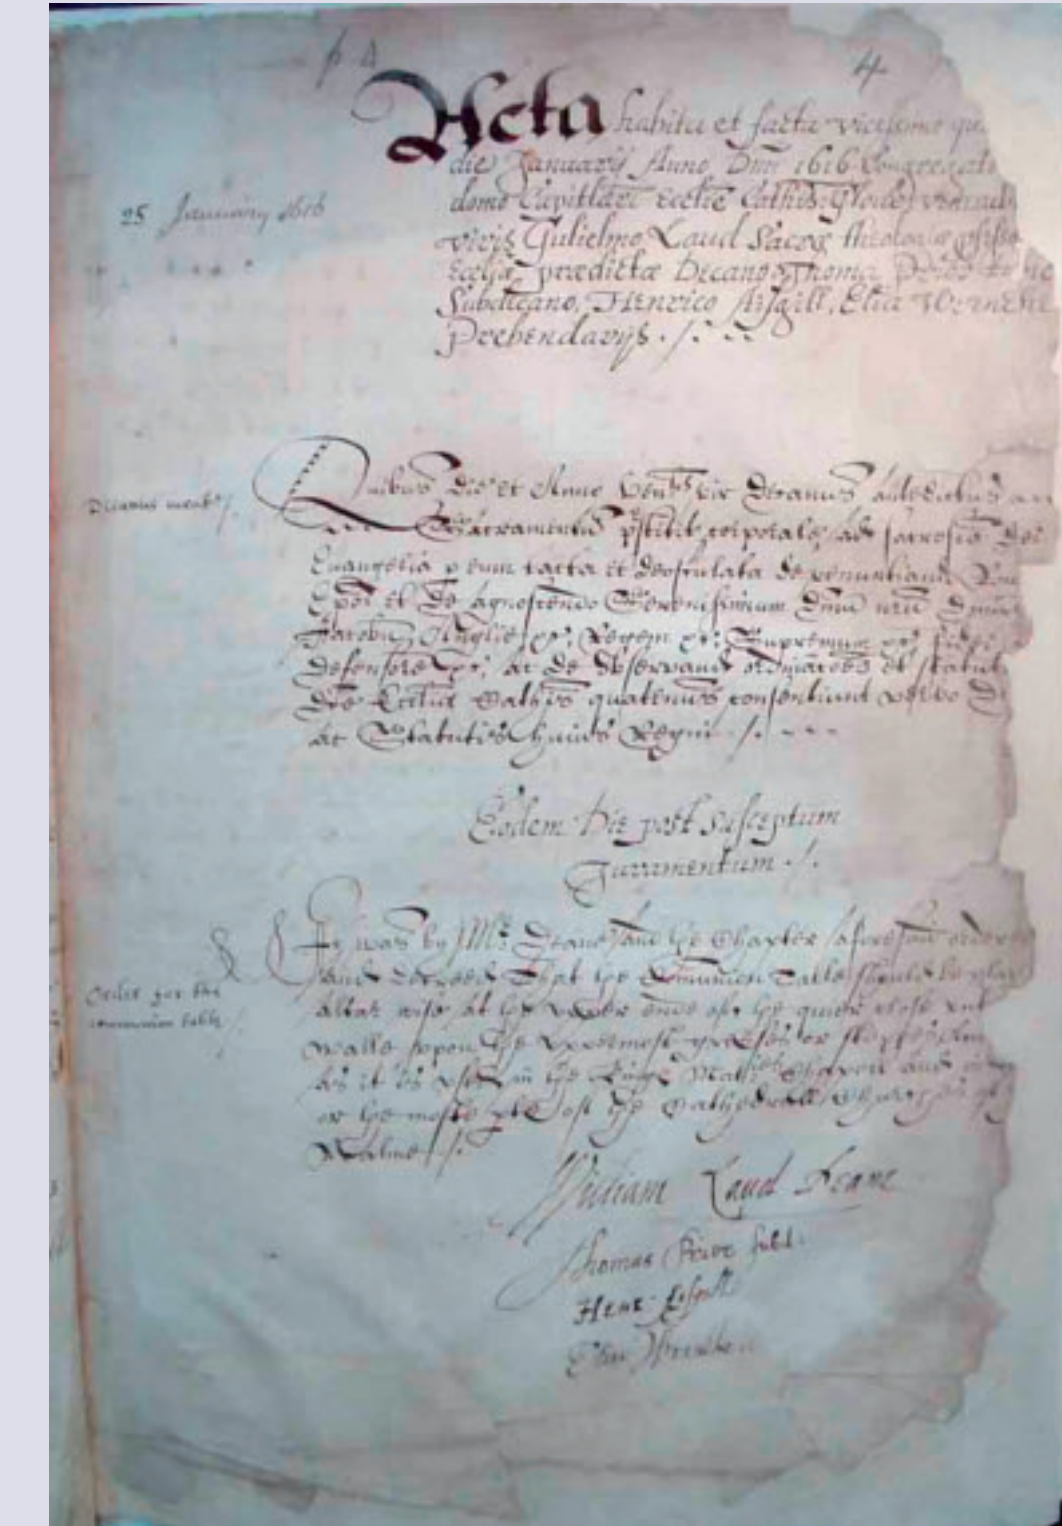 p 4 4
Acta habita et facta vicesimo qu
die Januarij Anno Dni 1616 Congregat
domo Capitlari Ecclie Cathis Glouc venerabi
25 January 1616
viris Gulielmo Laud Sacrae theologiae
Eccliae praedictae Decano Thoma Prior
Subdecano, Henrico Aisgill, Elia Wrenche
Prebendarijs ./.
Quibus die et Anno ven vir Decanus antedictus
Sacramentum pstitit corporale ad sacrosca Dei
Evangelia p eum tacta et deosculata de renuntiand Rom
Epo et de agnoscendo Serenissimum Dnum nrum Dnum
Jacobu Anglie &c Regem &c Supremum &c fidei
defensore &c ac de observand ordinaces et statut
Dce Ecclie Cathis quatenus consentiunt verbo Dei
ac Statutis huius Regni ./.
Eodem Die post susceptum
Juramentum ./.
It was by Mr Deane and the Chapter aforesaid ordere
and decreed That the Comunion Table should be plac
Order for the
comunion table
altar wise at the upper ende of the quier close
walle upon the uppermost greeses or steppes
as it is used in the Kings Maties Chapell and
or the moste pte of the Cathedrall Churches of
Realme ./.
William Laud Deane
Thomas Prior subd.
Henr. Aisgill
Elias Wrenche